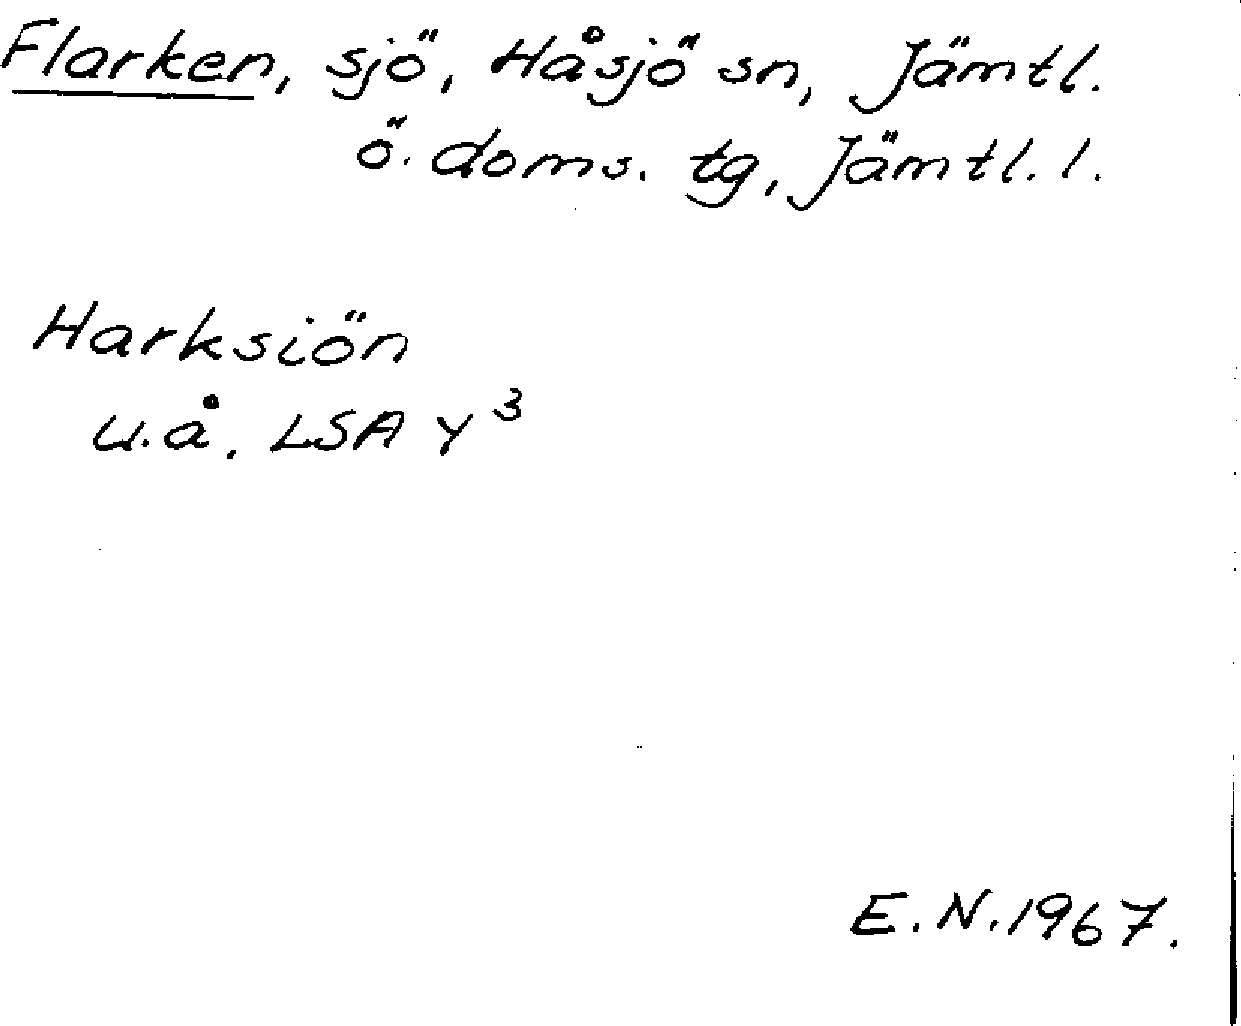 Flarken, sjö, Håsjö sn, Jämtl.
ö. doms. tg, Jämtl. l.
Harksiön
u.å. LSA Y³
E.N.1967.